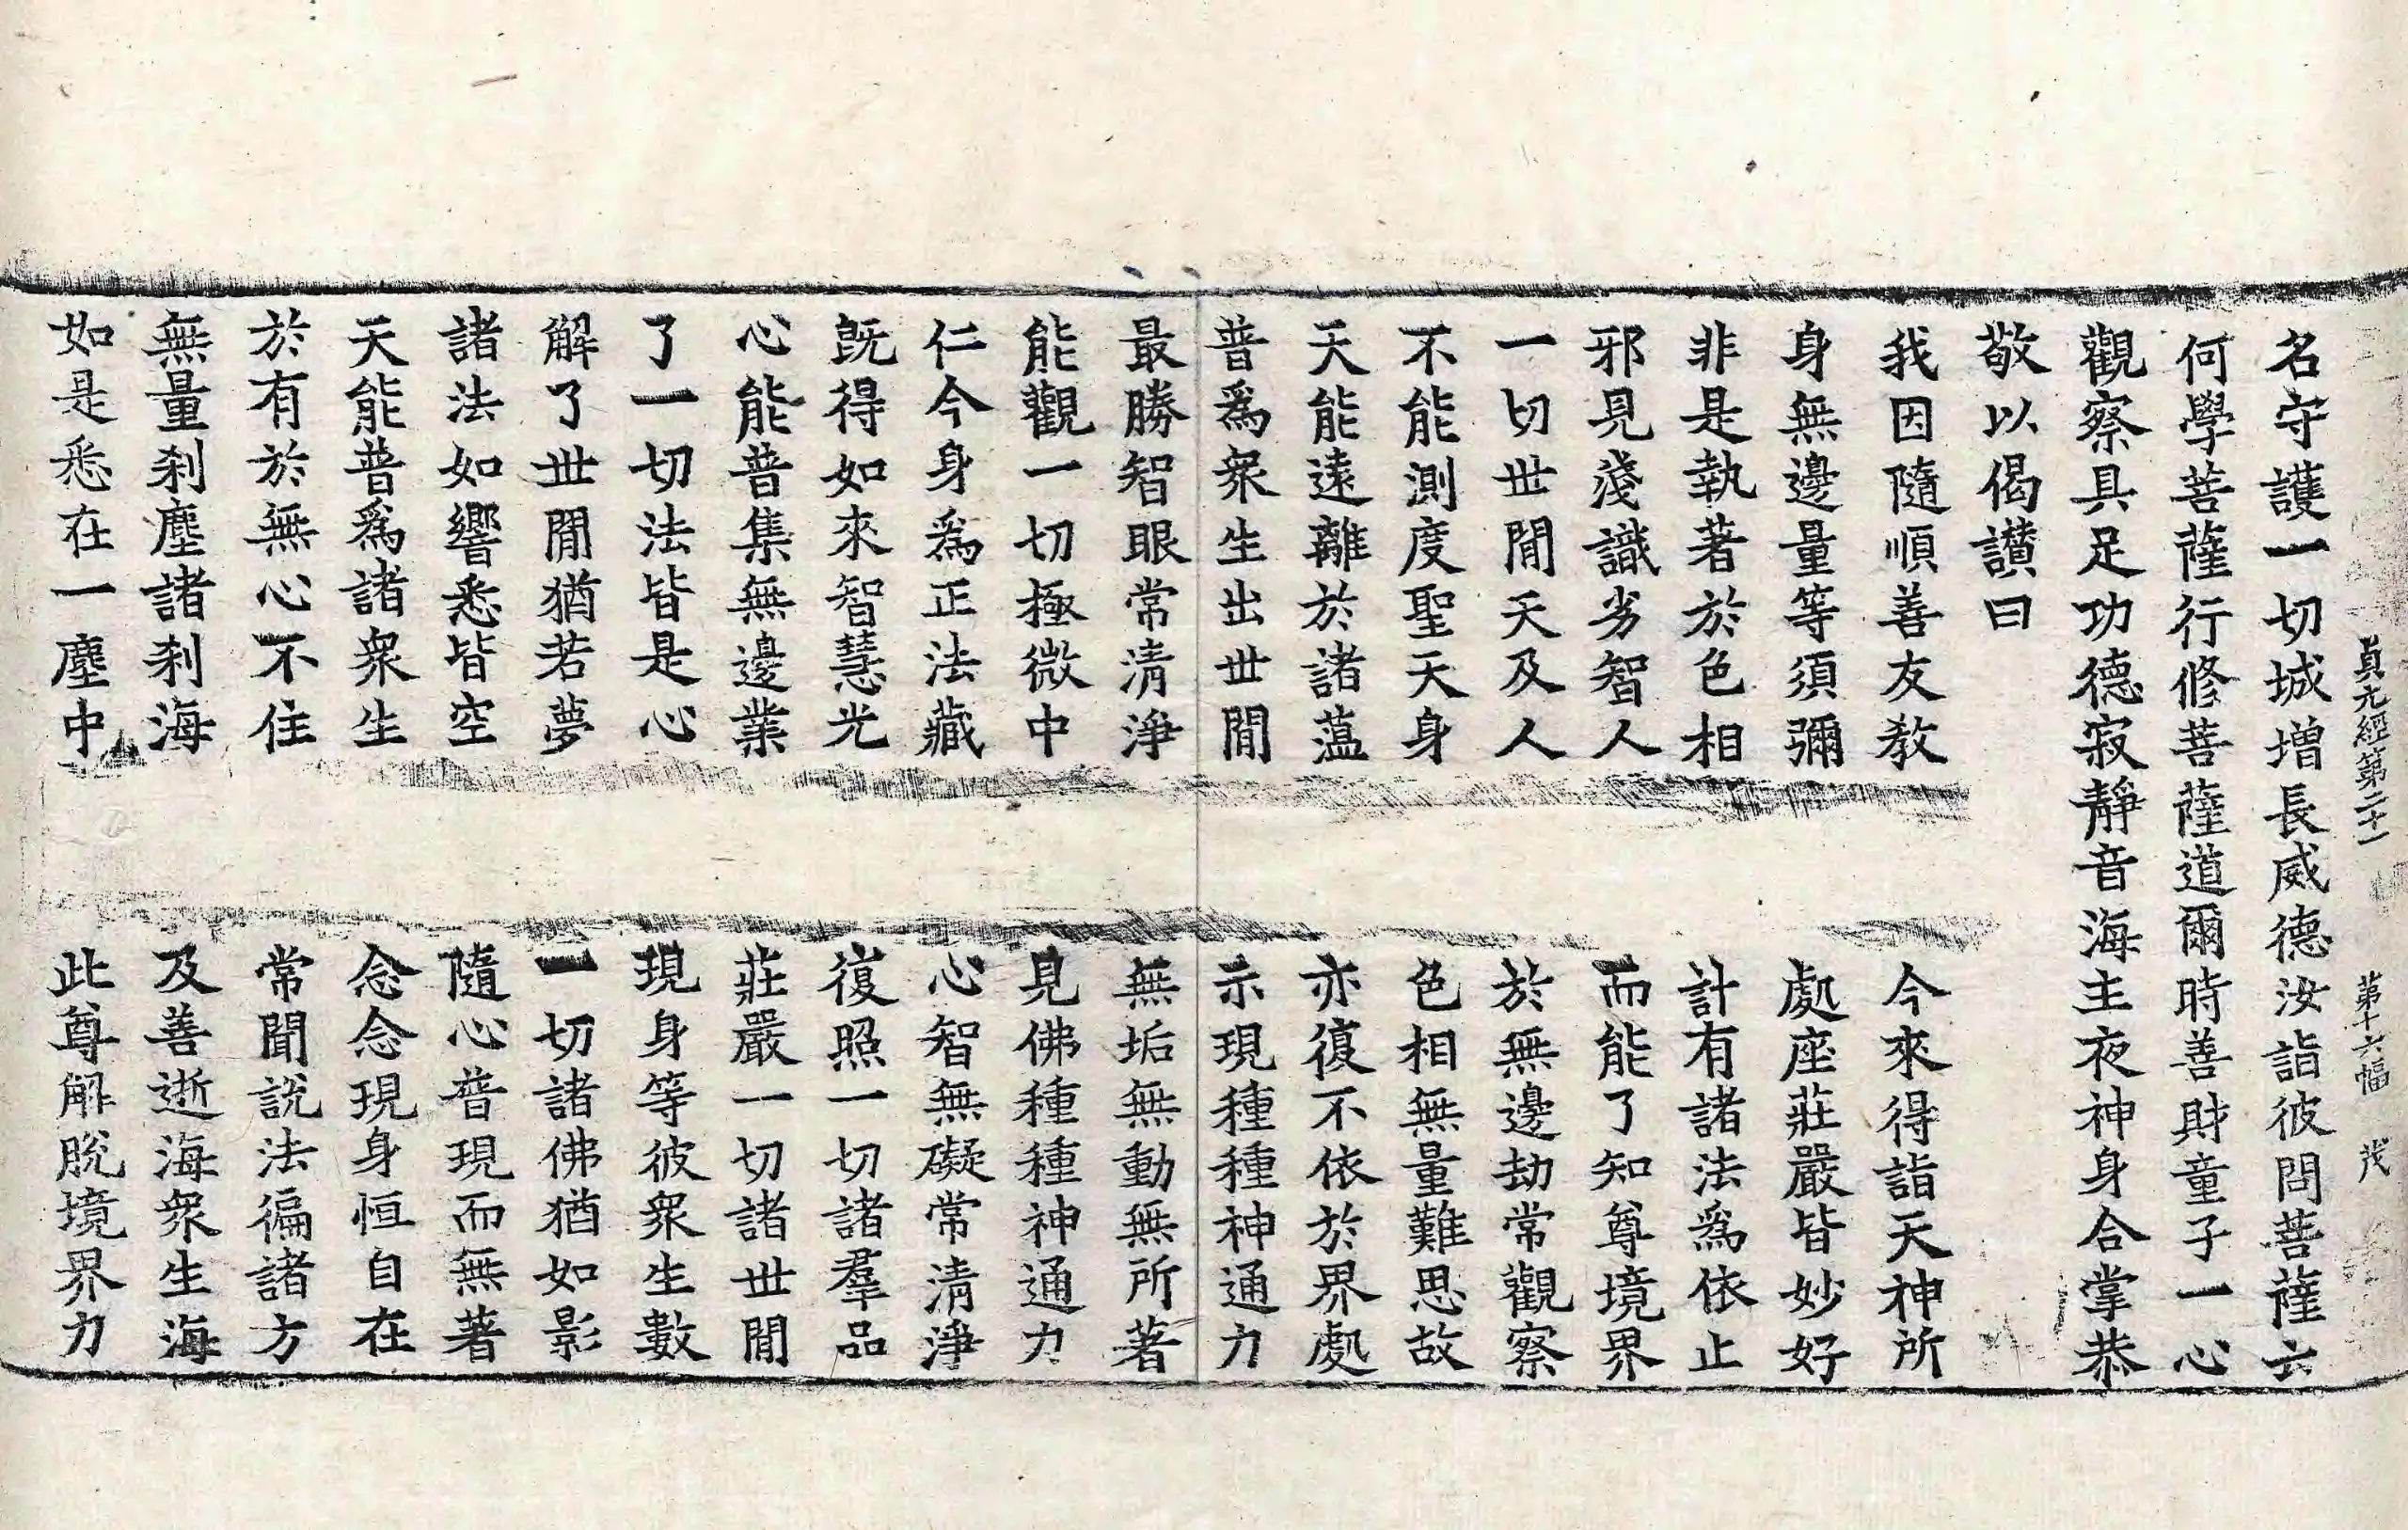 貞元經第二十一 第十六幅 茂
名守護一切城增長威德汝詣彼問菩薩云
何學菩薩行修菩薩道爾時善財童子一心
觀察具足功德寂靜音海主夜神身合掌恭
敬以偈讃曰
我因隨順善友教 今來得詣天神所
身無邊量等須彌 處座莊嚴皆妙好
非是執著於色相 計有諸法爲依止
邪見淺識劣智人 而能了知尊境界
一切世閒天及人 於無邊劫常觀察
不能測度聖天身 色相無量難思故
天能遠離於諸蕰 亦復不依於界處
普爲衆生出世閒 示現種種神通力
最勝智眼常清淨 無垢無動無所著
能觀一切極微中 見佛種種神通力
仁今身爲正法藏 心智無礙常清淨
旣得如來智慧光 復照一切諸羣品
心能普集無邊業 莊嚴一切諸世閒
了一切法皆是心 現身等彼衆生數
解了世閒猶若夢 一切諸佛猶如影
諸法如響悉皆空 隨心普現而無著
天能普爲諸衆生 念念現身恒自在
於有於無心不住 常聞說法徧諸方
無量刹塵諸刹海 及善逝海衆生海
如是悉在一塵中 此尊解脫境界力